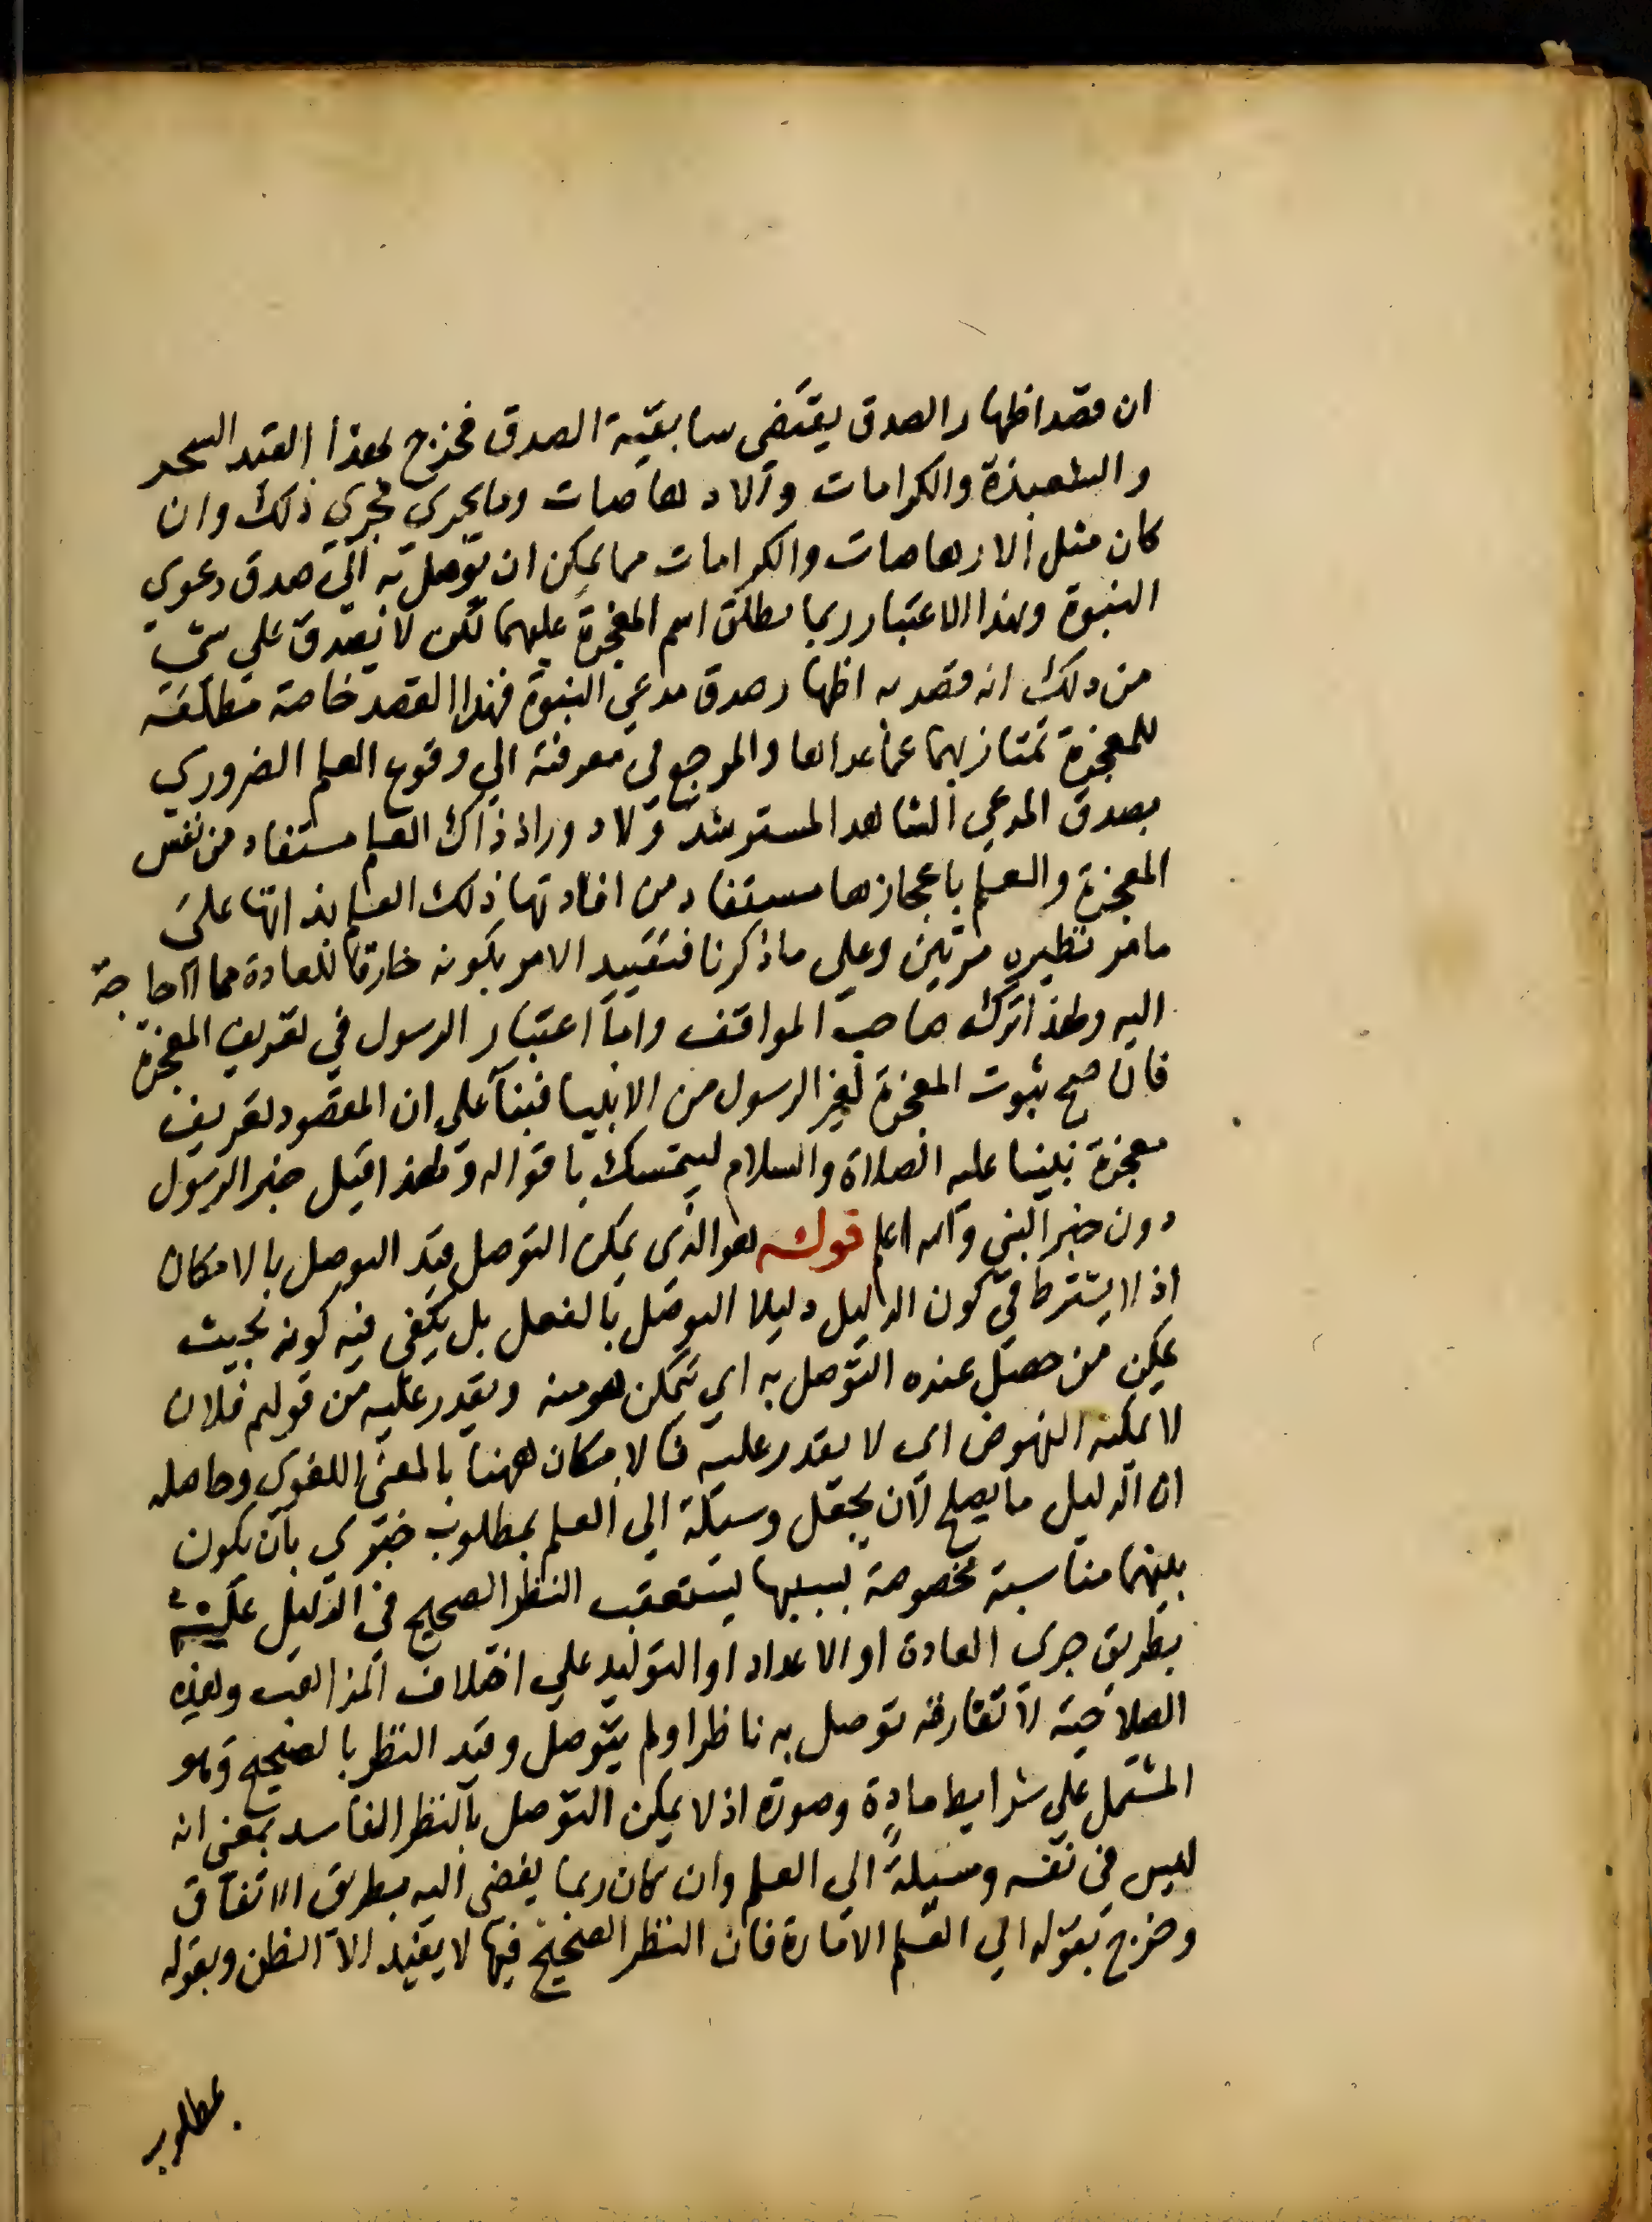 ان قصد اظهار الصدق يقتضي سابقية الصدق فخرج بهذا القيد السحر
والشعبذة والكرامات والارهاصات وما يجري مجري ذلك وان
كان مثل الارهاصات والكرامات مما يمكن ان يتوصل به الي صدق دعوي
النبوة وبهذا الاعتبار ربما يطلق اسم المعجزة عليهما لكن لا يصدق علي شي
من ذلك انه قصد به اظهار صدق مدعي النبوة فهذا القصد خاصة مطلقة
للمعجزة تمتاز بهما عما عداها والمرجع في معرفته الي وقوع العلم الضروري
بصدق المدعي الشاهد المسترشد ولا دور اذ ذاك العلم مستفاد من نفس
المعجزة والعلم باعجازها مستفاد من افادتها ذلك العلم بذاتها علي
ما مر نظيره مرتين وعلي ما ذكرنا فتقييد الامر بكونه خارقا للعادة مما لا حاجة
اليه ولهذا تركه صاحب المواقف واما اعتبار الرسول في تعريف المعجزة
فان صح ثبوت المعجزة لغير الرسول من الانبيا فبنآ علي ان المقصود تعريف
معجزة نبينا عليه الصلاة والسلام ليتمسك باقواله ولهذا قيل خبر الرسول
دون خبر النبي والله اعلم قوله هو الذي يمكن التوصل قيد التوصل بالامكان
اذ لا يشترط في كون الدليل دليلا التوصل بالفعل بل يكفي فيه كونه بحيث
يمكن من حصل عنده التوصل به اي يتمكن هو منه ويقدر عليه من قولهم فلان
لا يمكنه النهوض اي لا يقدر عليه فالامكان ههنا بالمعني اللغوي وحاصله
ان الدليل ما يصلح لان يجعل وسيلة الي العلم بمطلوب خبري بان يكون
بينهما مناسبة مخصوصة بسببها يستعقب النظر الصحيح في الدليل علمية
بطريق جري العادة او الاعداد او التوليد علي اختلاف المذاهب وهذه
الصلاحية لا تفارقه توصل به ناظر اولم يتوصل وقيد النظر بالصحيح وهو
المشتمل علي شرايط مادة وصورة اذ لا يمكن التوصل بالنظر الفاسد بمعني انه
ليس في نفسه وسيلة الي العلم وان كان ربما يفضي اليه بطريق الاتفاق
وخرج بقوله الي العلم الامارة فان النظر الصحيح فيها لا يفيد الا الظن وبقوله
بمطلوب